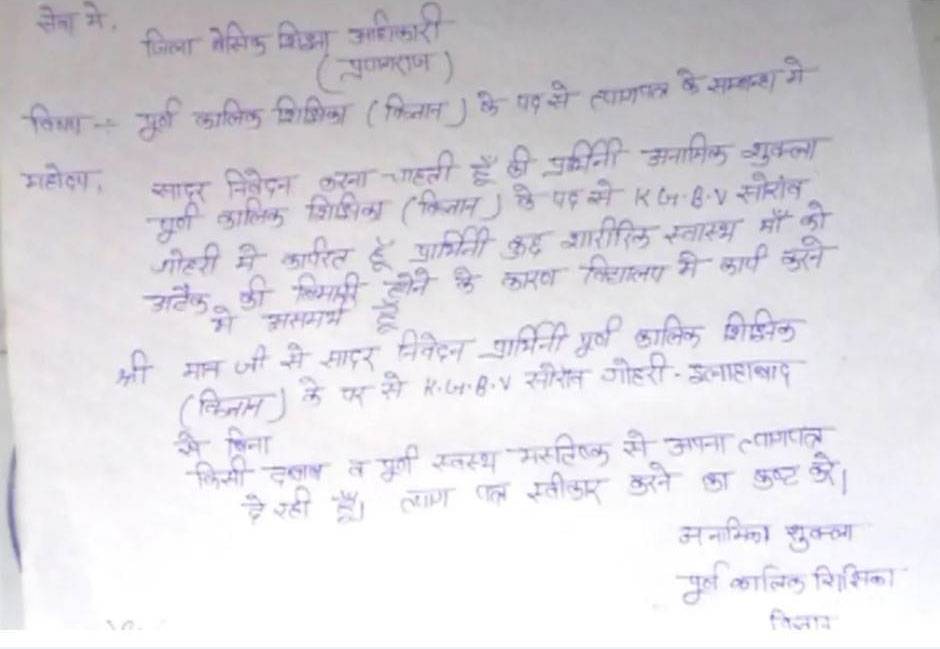 सेवा मे,
जिला बेसिक शिक्षा अधिकारी
(प्रयागराज)
विषय :- पूर्ण कालिक शिक्षिका (विज्ञान) के पद से त्यागपत्र के सम्बन्ध मे
महोदय,
सादर निवेदन करना चाहती हूँ की प्रार्थिनी अनामिक शुक्ला
पूर्ण कालिक शिक्षिका (विज्ञान) के पद से K.G.B.V सोरांव
गोहरी मे कार्यरत हूँ प्रार्थिनी कुछ शारीरिक स्वास्थ माँ को
अटैक की बिमारी होने के कारण विद्यालय मे कार्य करने
मे असमर्थ हूँ
श्री मान जी से सादर निवेदन प्रार्थिनी पूर्ण कालिक शिक्षिक
(विज्ञान) के पद से K.G.B.V सोरांव गोहरी - इलाहाबाद
से बिना
किसी दबाव व पूर्ण स्वस्थ मस्तिष्क से अपना त्यागपत्र
दे रही हूँ। त्याग पत्र स्वीकार करने का कष्ट करे।
अनामिका शुक्ला
पूर्ण कालिक शिक्षिका
विज्ञान